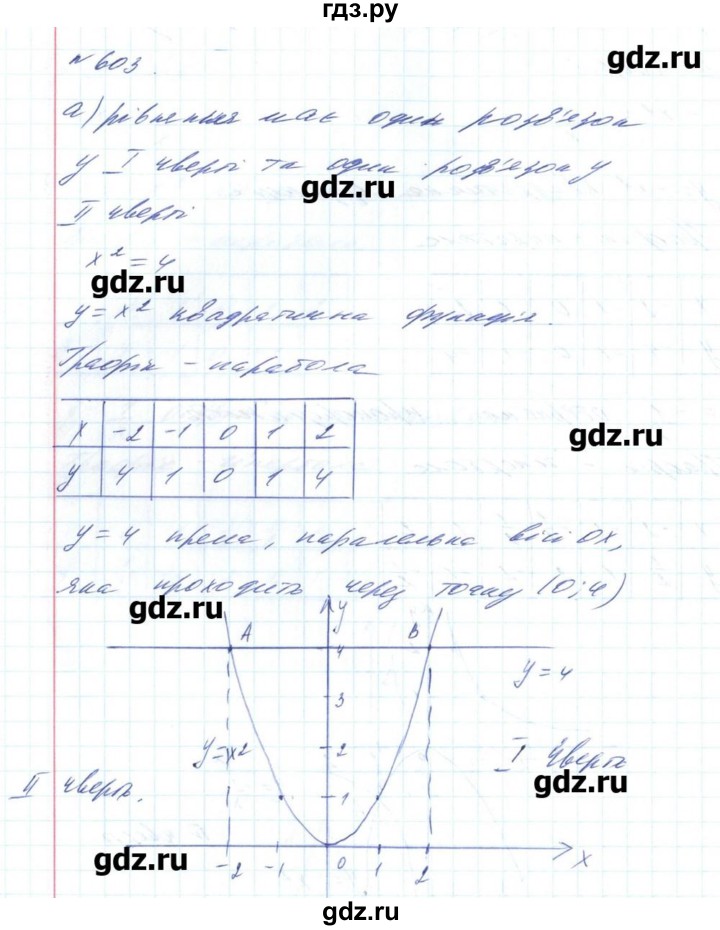 гдз.ру
gdz.ru
№603
а) рівняння має один розв'язок
у I чверті та один розв'язок у
gdz.ru
II чверті
x² = 4
gdz.ru
y = x² квадратична функція.
Графік - парабола
x -2 -1 0 1 2
gdz.ru
y 4 1 0 1 4
y = 4 пряма, паралельна вісі ОХ,
яка проходить через точку (0; 4)
gdz.ru
y
A B
4
y = 4
3
y = x² 2 I чверть
gdz.ru
II чверть.
1
gdz.ru
-2 -1 0 1 2 x
gdz.ru